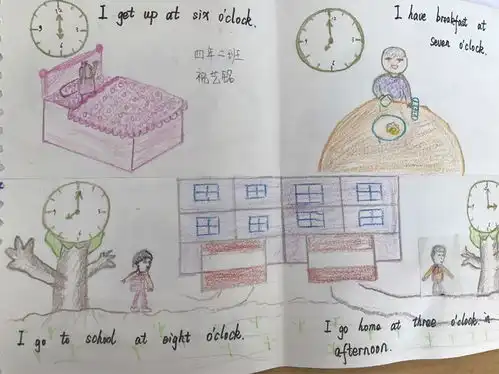 I get up at six o'clock.
四年二班
祝艺铭
I have breakfast at
seven o'clock.
I go to school at eight o'clock.
I go home at three o'clock in
afternoon.